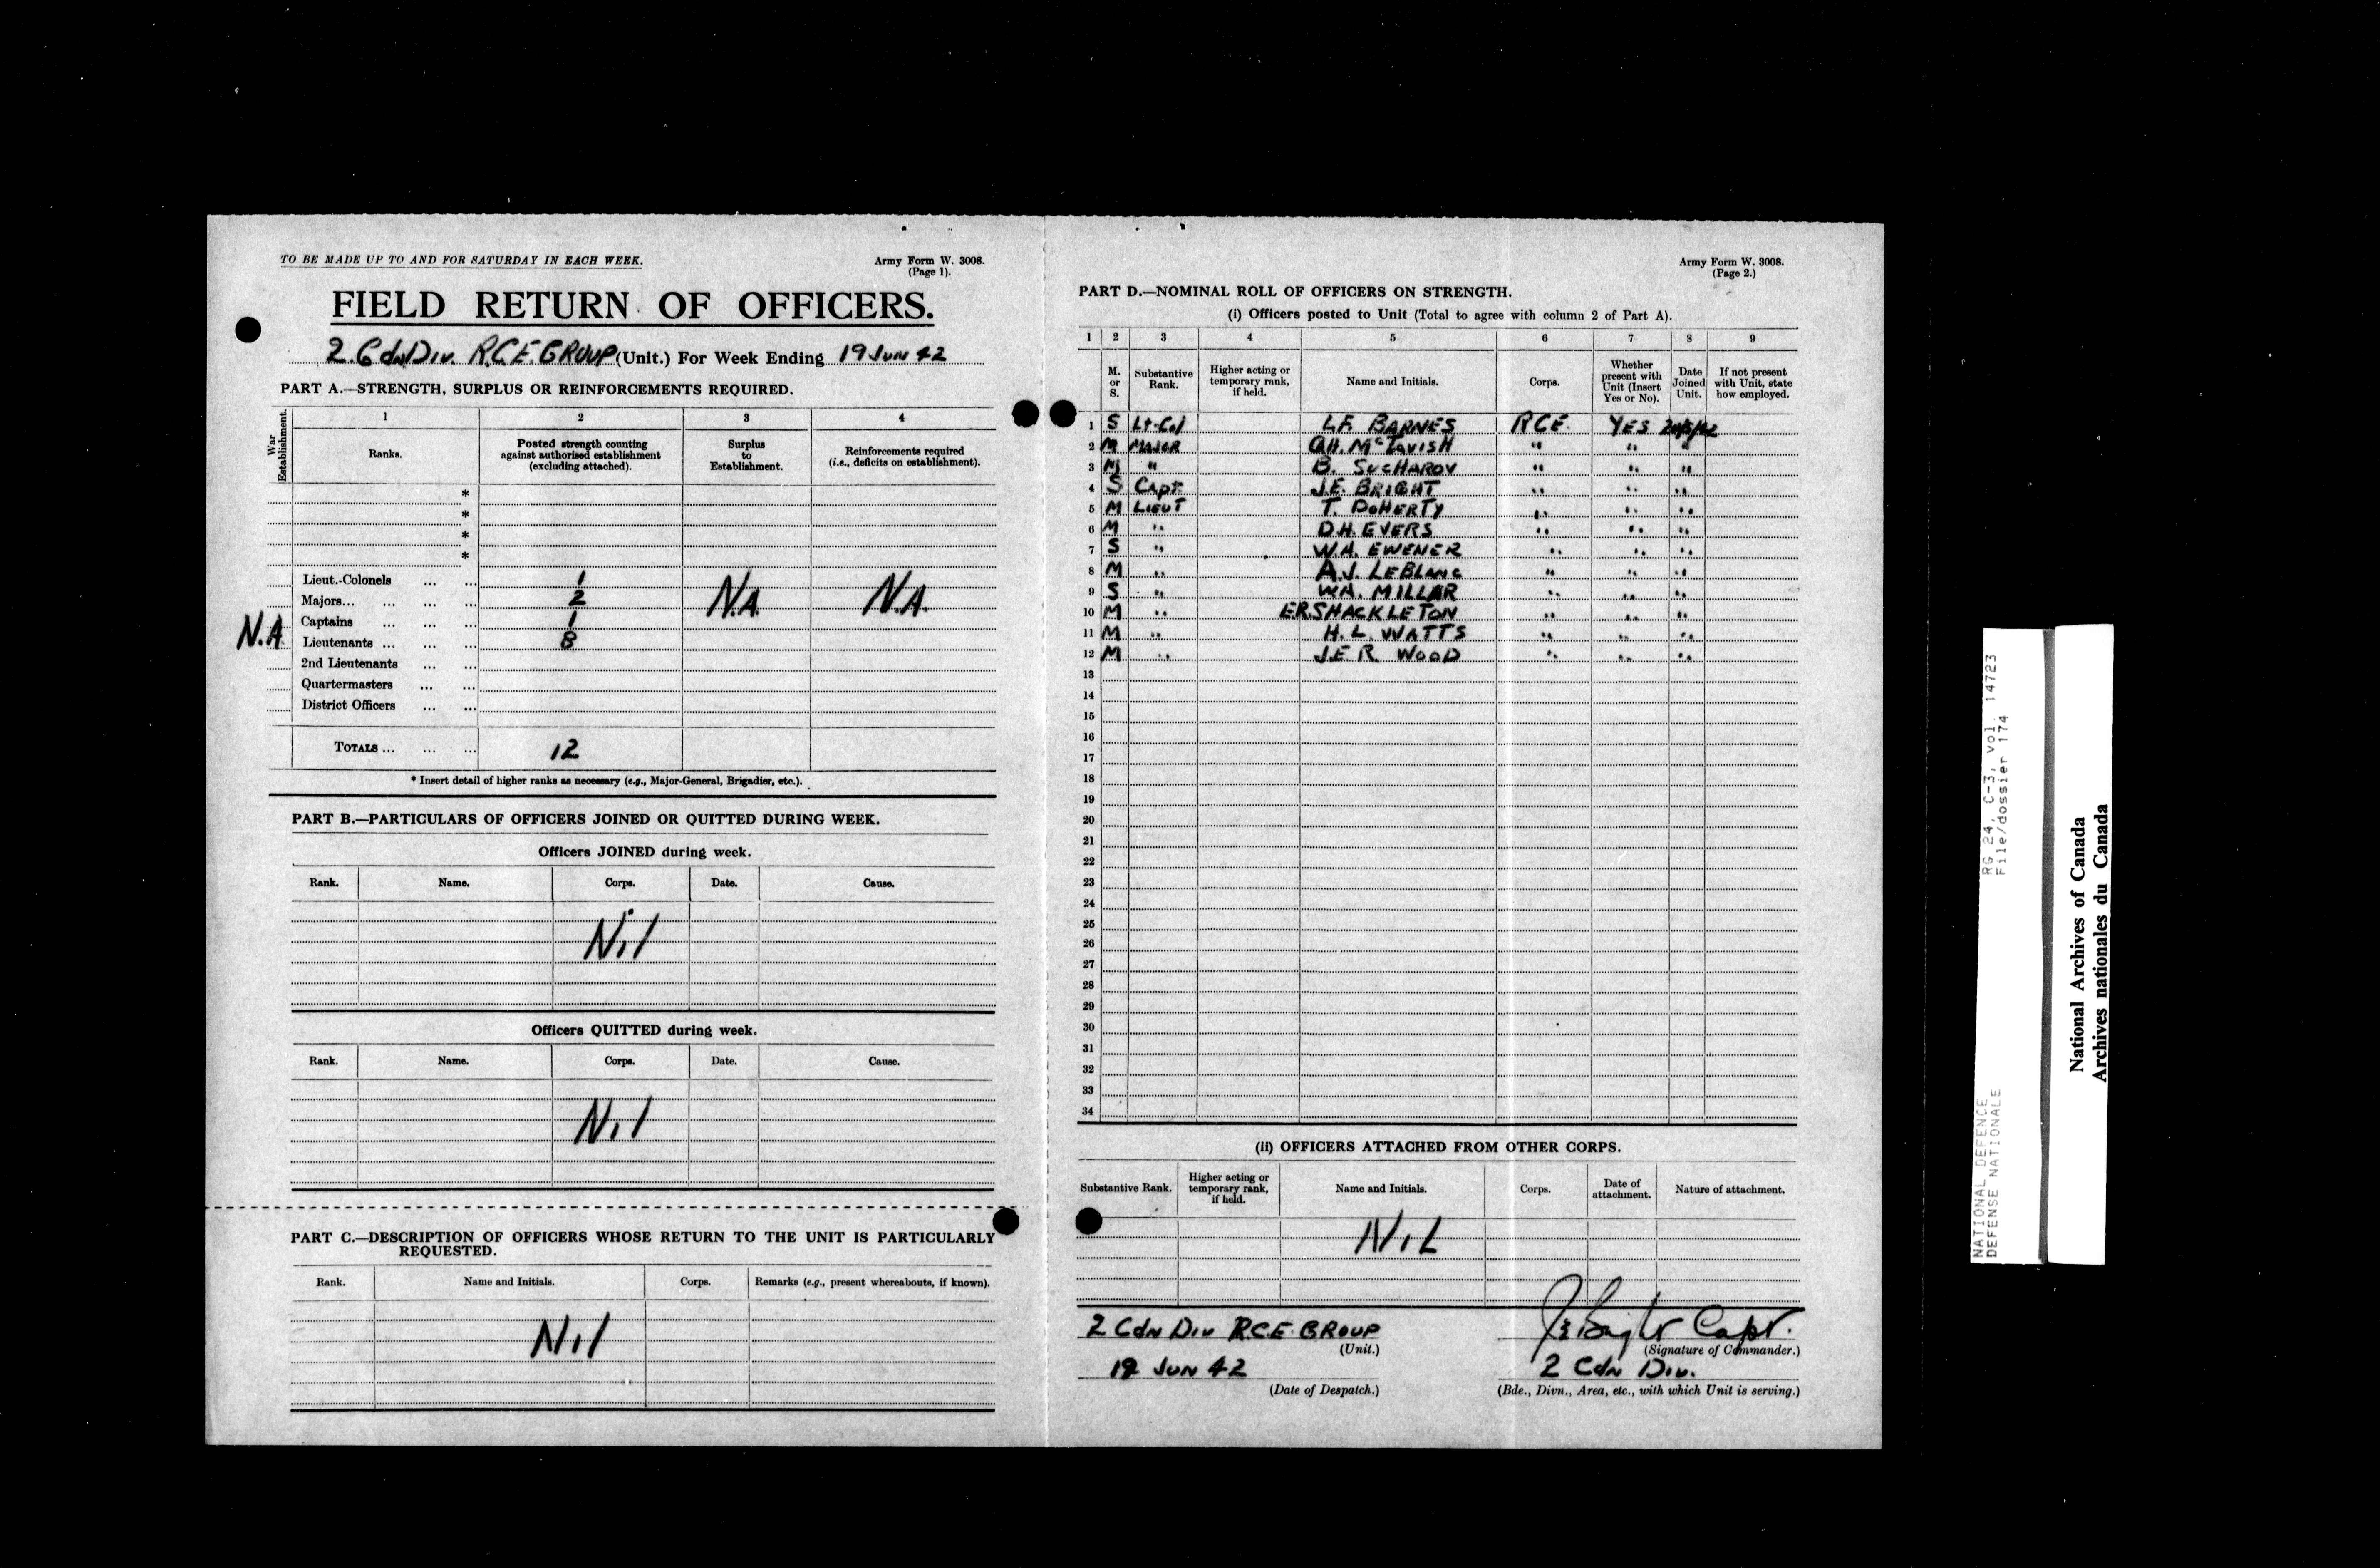 TO BE MADE UP TO AND FOR SATURDAY IN EACH WEEK.
Army Form W. 3008.
(Page 1).
FIELD RETURN OF OFFICERS.
2 Cdn Div. R.C.E. GROUP (Unit.) For Week Ending 19 JUN 42
PART A.—STRENGTH, SURPLUS OR REINFORCEMENTS REQUIRED.
War Establishment.
1 2 3 4
Ranks. Posted strength counting against authorised establishment (excluding attached). Surplus to Establishment. Reinforcements required (i.e., deficits on establishment).
*
*
*
*
Lieut.-Colonels ... ... 1
Majors... ... ... ... 2 N.A. N.A.
Captains ... ... ... 1
N.A Lieutenants ... ... ... 8
2nd Lieutenants ... ...
Quartermasters ... ...
District Officers ... ...
TOTALS ... ... ... 12
* Insert detail of higher ranks as necessary (e.g., Major-General, Brigadier, etc.).
PART B.—PARTICULARS OF OFFICERS JOINED OR QUITTED DURING WEEK.
Officers JOINED during week.
Rank. Name. Corps. Date. Cause.
Nil
Officers QUITTED during week.
Rank. Name. Corps. Date. Cause.
Nil
PART C.—DESCRIPTION OF OFFICERS WHOSE RETURN TO THE UNIT IS PARTICULARLY
REQUESTED.
Rank. Name and Initials. Corps. Remarks (e.g., present whereabouts, if known).
Nil
Army Form W. 3008.
(Page 2.)
PART D.—NOMINAL ROLL OF OFFICERS ON STRENGTH.
(i) Officers posted to Unit (Total to agree with column 2 of Part A).
1 2 3 4 5 6 7 8 9
M. or S. Substantive Rank. Higher acting or temporary rank, if held. Name and Initials. Corps. Whether present with Unit (Insert Yes or No). Date Joined Unit. If not present with Unit, state how employed.
1 S Lt-Col L.F. BARNES RCE. YES
2 M MAJOR G.H. McTAVISH " " "
3 M " B. SUCHAROV " " "
4 S Capt. J.E. BRIGHT " " "
5 M LIEUT T. DOHERTY " " "
6 M " D.H. EVERS " " "
7 S " W.A. EWENER " " "
8 M " A.J. LEBLANC " " "
9 S " W.A. MILLAR " " "
10 M " E.R. SHACKLETON " " "
11 M " H.L. WATTS " " "
12 M " J.E.R. WOOD " " "
13
14
15
16
17
18
19
20
21
22
23
24
25
26
27
28
29
30
31
32
33
34
(ii) OFFICERS ATTACHED FROM OTHER CORPS.
Substantive Rank. Higher acting or temporary rank, if held. Name and Initials. Corps. Date of attachment. Nature of attachment.
NIL
2 Cdn Div R.C.E. GROUP
(Unit.)
JE Bright Capt.
(Signature of Commander.)
19 JUN 42
(Date of Despatch.)
2 Cdn Div.
(Bde., Divn., Area, etc., with which Unit is serving.)
NATIONAL DEFENCE RG 24, C-3, Vol. 14723
DEFENSE NATIONALE File/dossier 174
National Archives of Canada
Archives nationales du Canada